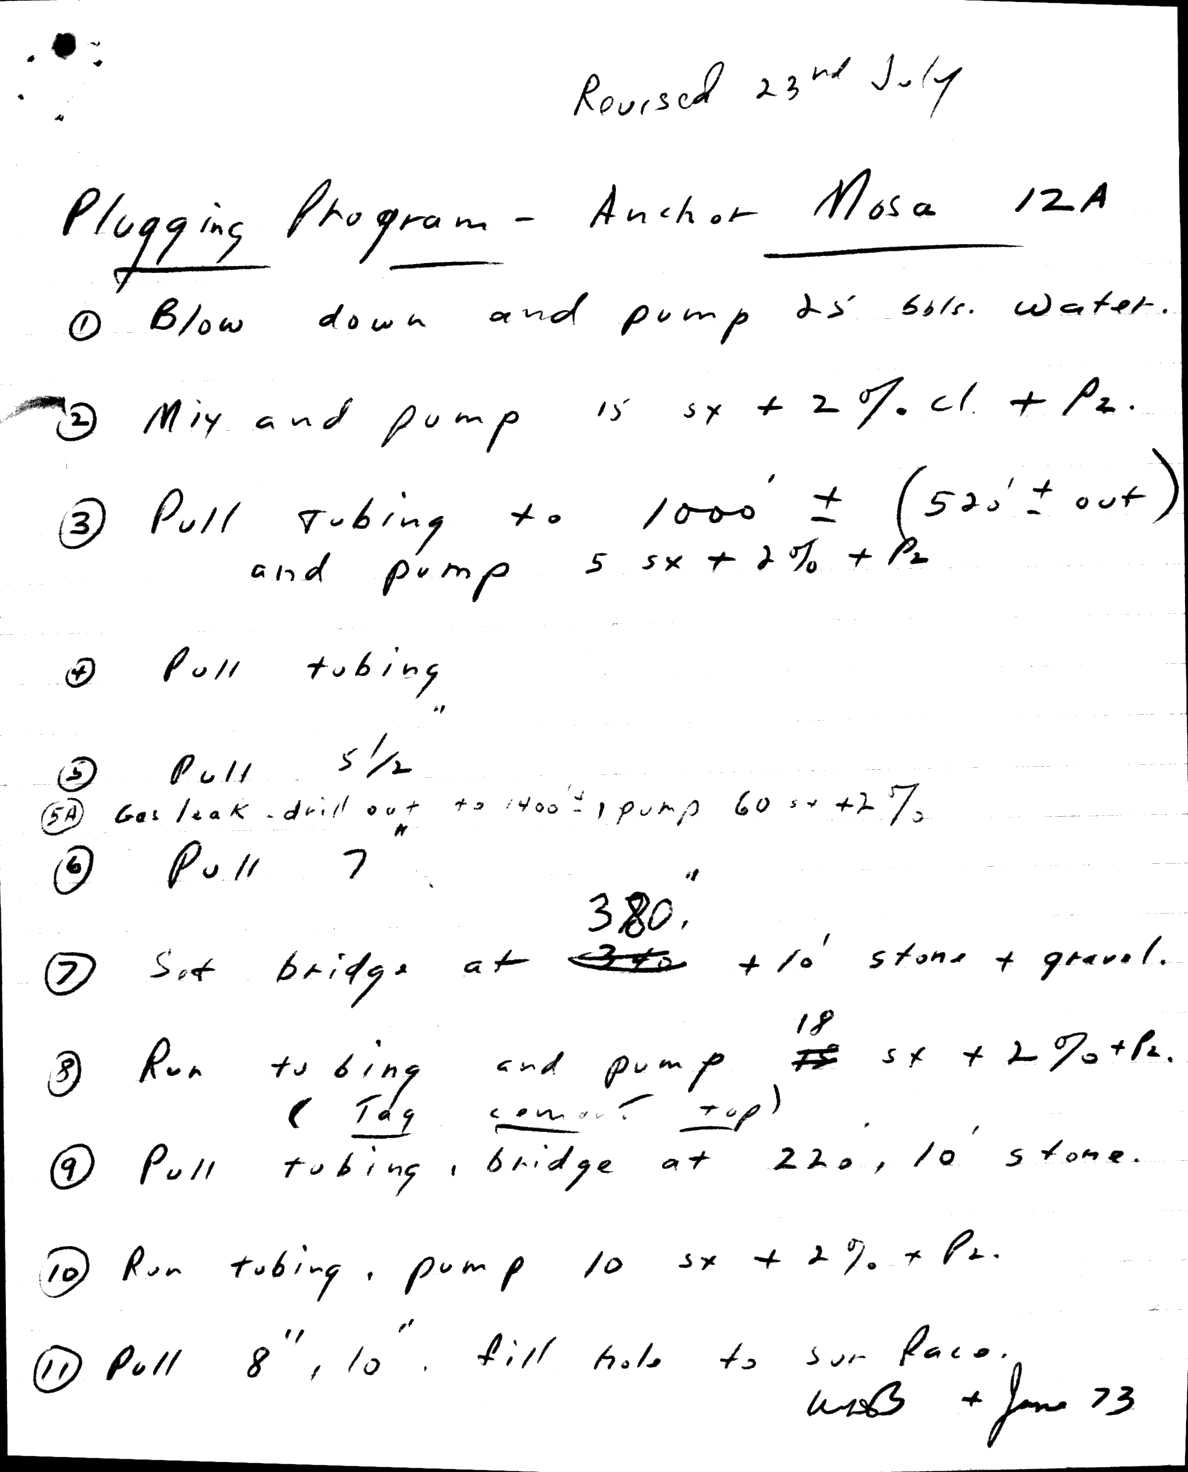 Revised 23nd July
Plugging Program - Anchor Mosa 12A
① Blow down and pump 25 bbls. water.
② Mix and pump 15 sx + 2%. cl. + P2.
③ Pull Tubing to 1000' ± (520' ± out)
and pump 5 sx + 2% + P2
④ Pull tubing
⑤ Pull 5 1/2"
5A Gas leak - drill out to 1400'±, pump 60 sx +2%
⑥ Pull 7"
380'
⑦ Set bridge at 340 + 10' stone + gravel.
18
⑧ Run tubing and pump 15 sx + 2% + P2.
(Tag cement top)
⑨ Pull tubing, bridge at 220', 10' stone.
⑩ Run tubing, pump 10 sx + 2%. + P2.
⑪ Pull 8", 10". fill hole to surface.
June 73